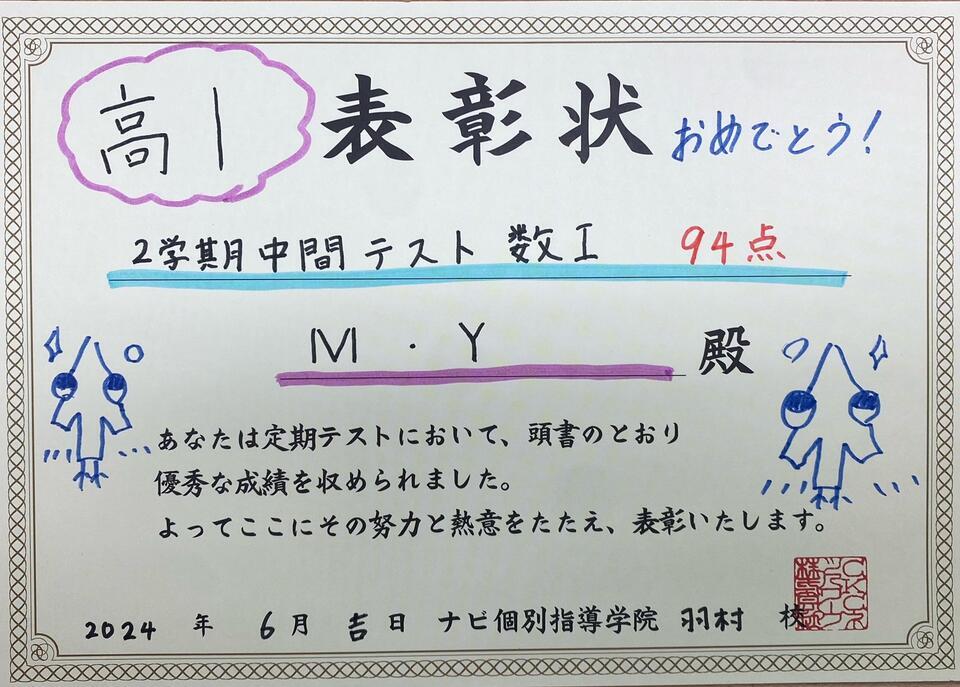 高1 表彰状 おめでとう!
2学期中間テスト 数I 94点
M・Y 殿
あなたは定期テストにおいて、頭書のとおり
優秀な成績を収められました。
よってここにその努力と熱意をたたえ、表彰いたします。
2024 年 6月 吉日 ナビ個別指導学院 羽村 校